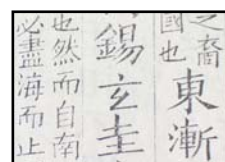 之裔
國也
東漸
錫玄圭
也然而自南
必盡海而止